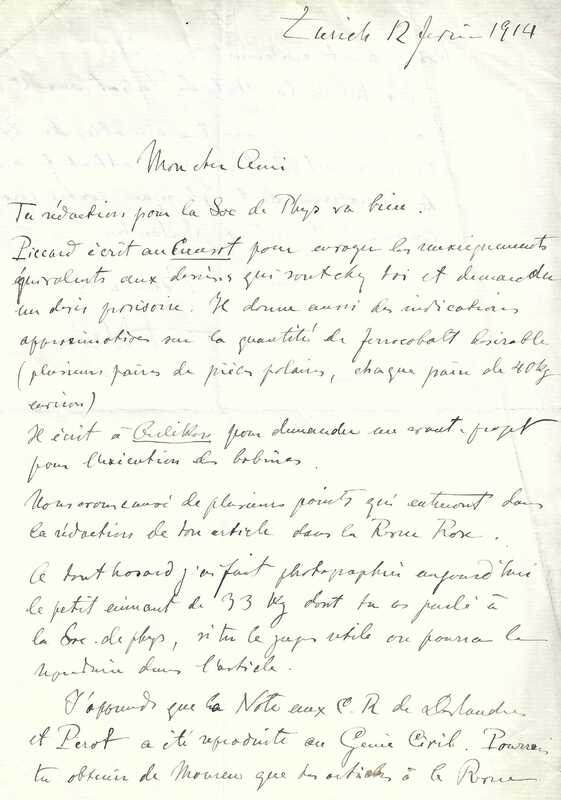 Zurich 12 février 1914
Mon cher Ami
Ta rédaction pour la Soc de Phys va bien.
Piccard écrit au Creusot pour envoyer les renseignements
équivalents aux dessins qui sont chez toi et demander
un devis provisoire. Il donne aussi des indications
approximatives sur la quantité de ferrocobalt désirable
(plusieurs paires de pièces polaires, chaque paire de 40 kg
environ)
Il écrit à Oerlikon pour demander un avant-projet
pour l'exécution des bobines.
Nous avons causé de plusieurs points qui entreront dans
la rédaction de ton article dans la Revue Rose.
A tout hasard j'ai fait photographier aujourd'hui
le petit aimant de 33 kg dont tu as parlé à
la Soc. de phys, si tu le juges utile on pourra le
reproduire dans l'article.
J'apprends que la Note aux C. R de Deslandres
et Perot a été reproduite au Genie Civil. Pourrais
tu obtenir de Moureu que des articles à la Revue